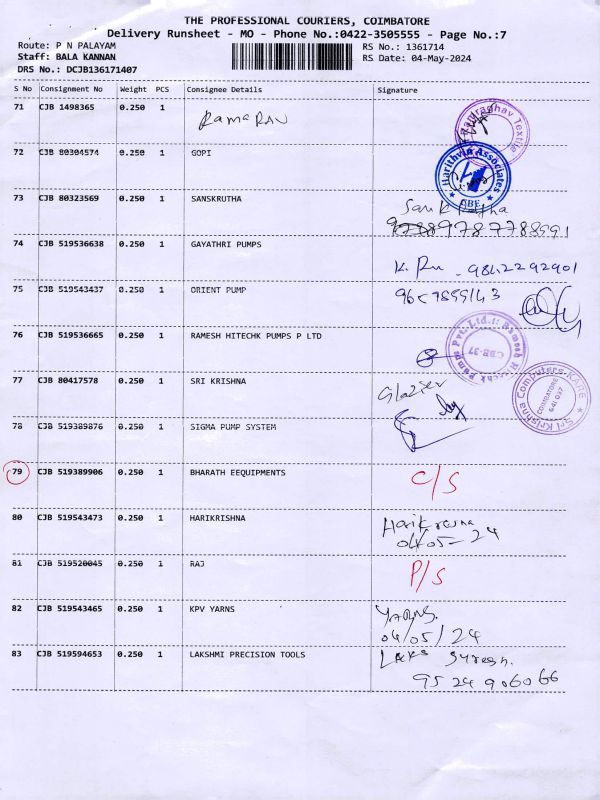 THE PROFESSIONAL COURIERS, COIMBATORE
Delivery Runsheet - MO - Phone No.:0422-3505555 - Page No.:7
Route: P N PALAYAM RS No.: 1361714
Staff: BALA KANNAN RS Date: 04-May-2024
DRS No.: DCJB136171407
S No Consignment No Weight PCS Consignee Details Signature
71 CJB 1498365 0.250 1 Rama RAV
Ramraghav Textile
72 CJB 80304574 0.250 1 GOPI
Harithvin Associates
CBE
73 CJB 80323569 0.250 1 SANSKRUTHA
9787788591
74 CJB 519536638 0.250 1 GAYATHRI PUMPS
9842292901
75 CJB 519543437 0.250 1 ORIENT PUMP
76 CJB 519536665 0.250 1 RAMESH HITECHK PUMPS P LTD
Ramesh Hitechk Pumps Pvt. Ltd.
CBE-37
77 CJB 80417578 0.250 1 SRI KRISHNA
Sri Krishna Computers-KARE
COIMBATORE
641 037
78 CJB 519389876 0.250 1 SIGMA PUMP SYSTEM
79 CJB 519389906 0.250 1 BHARATH EEQUIPMENTS C/S
80 CJB 519543473 0.250 1 HARIKRISHNA
04/05-24
81 CJB 519520045 0.250 1 RAJ P/S
82 CJB 519543465 0.250 1 KPV YARNS
04/05/24
83 CJB 519594653 0.250 1 LAKSHMI PRECISION TOOLS Suresh.
95 24 906066